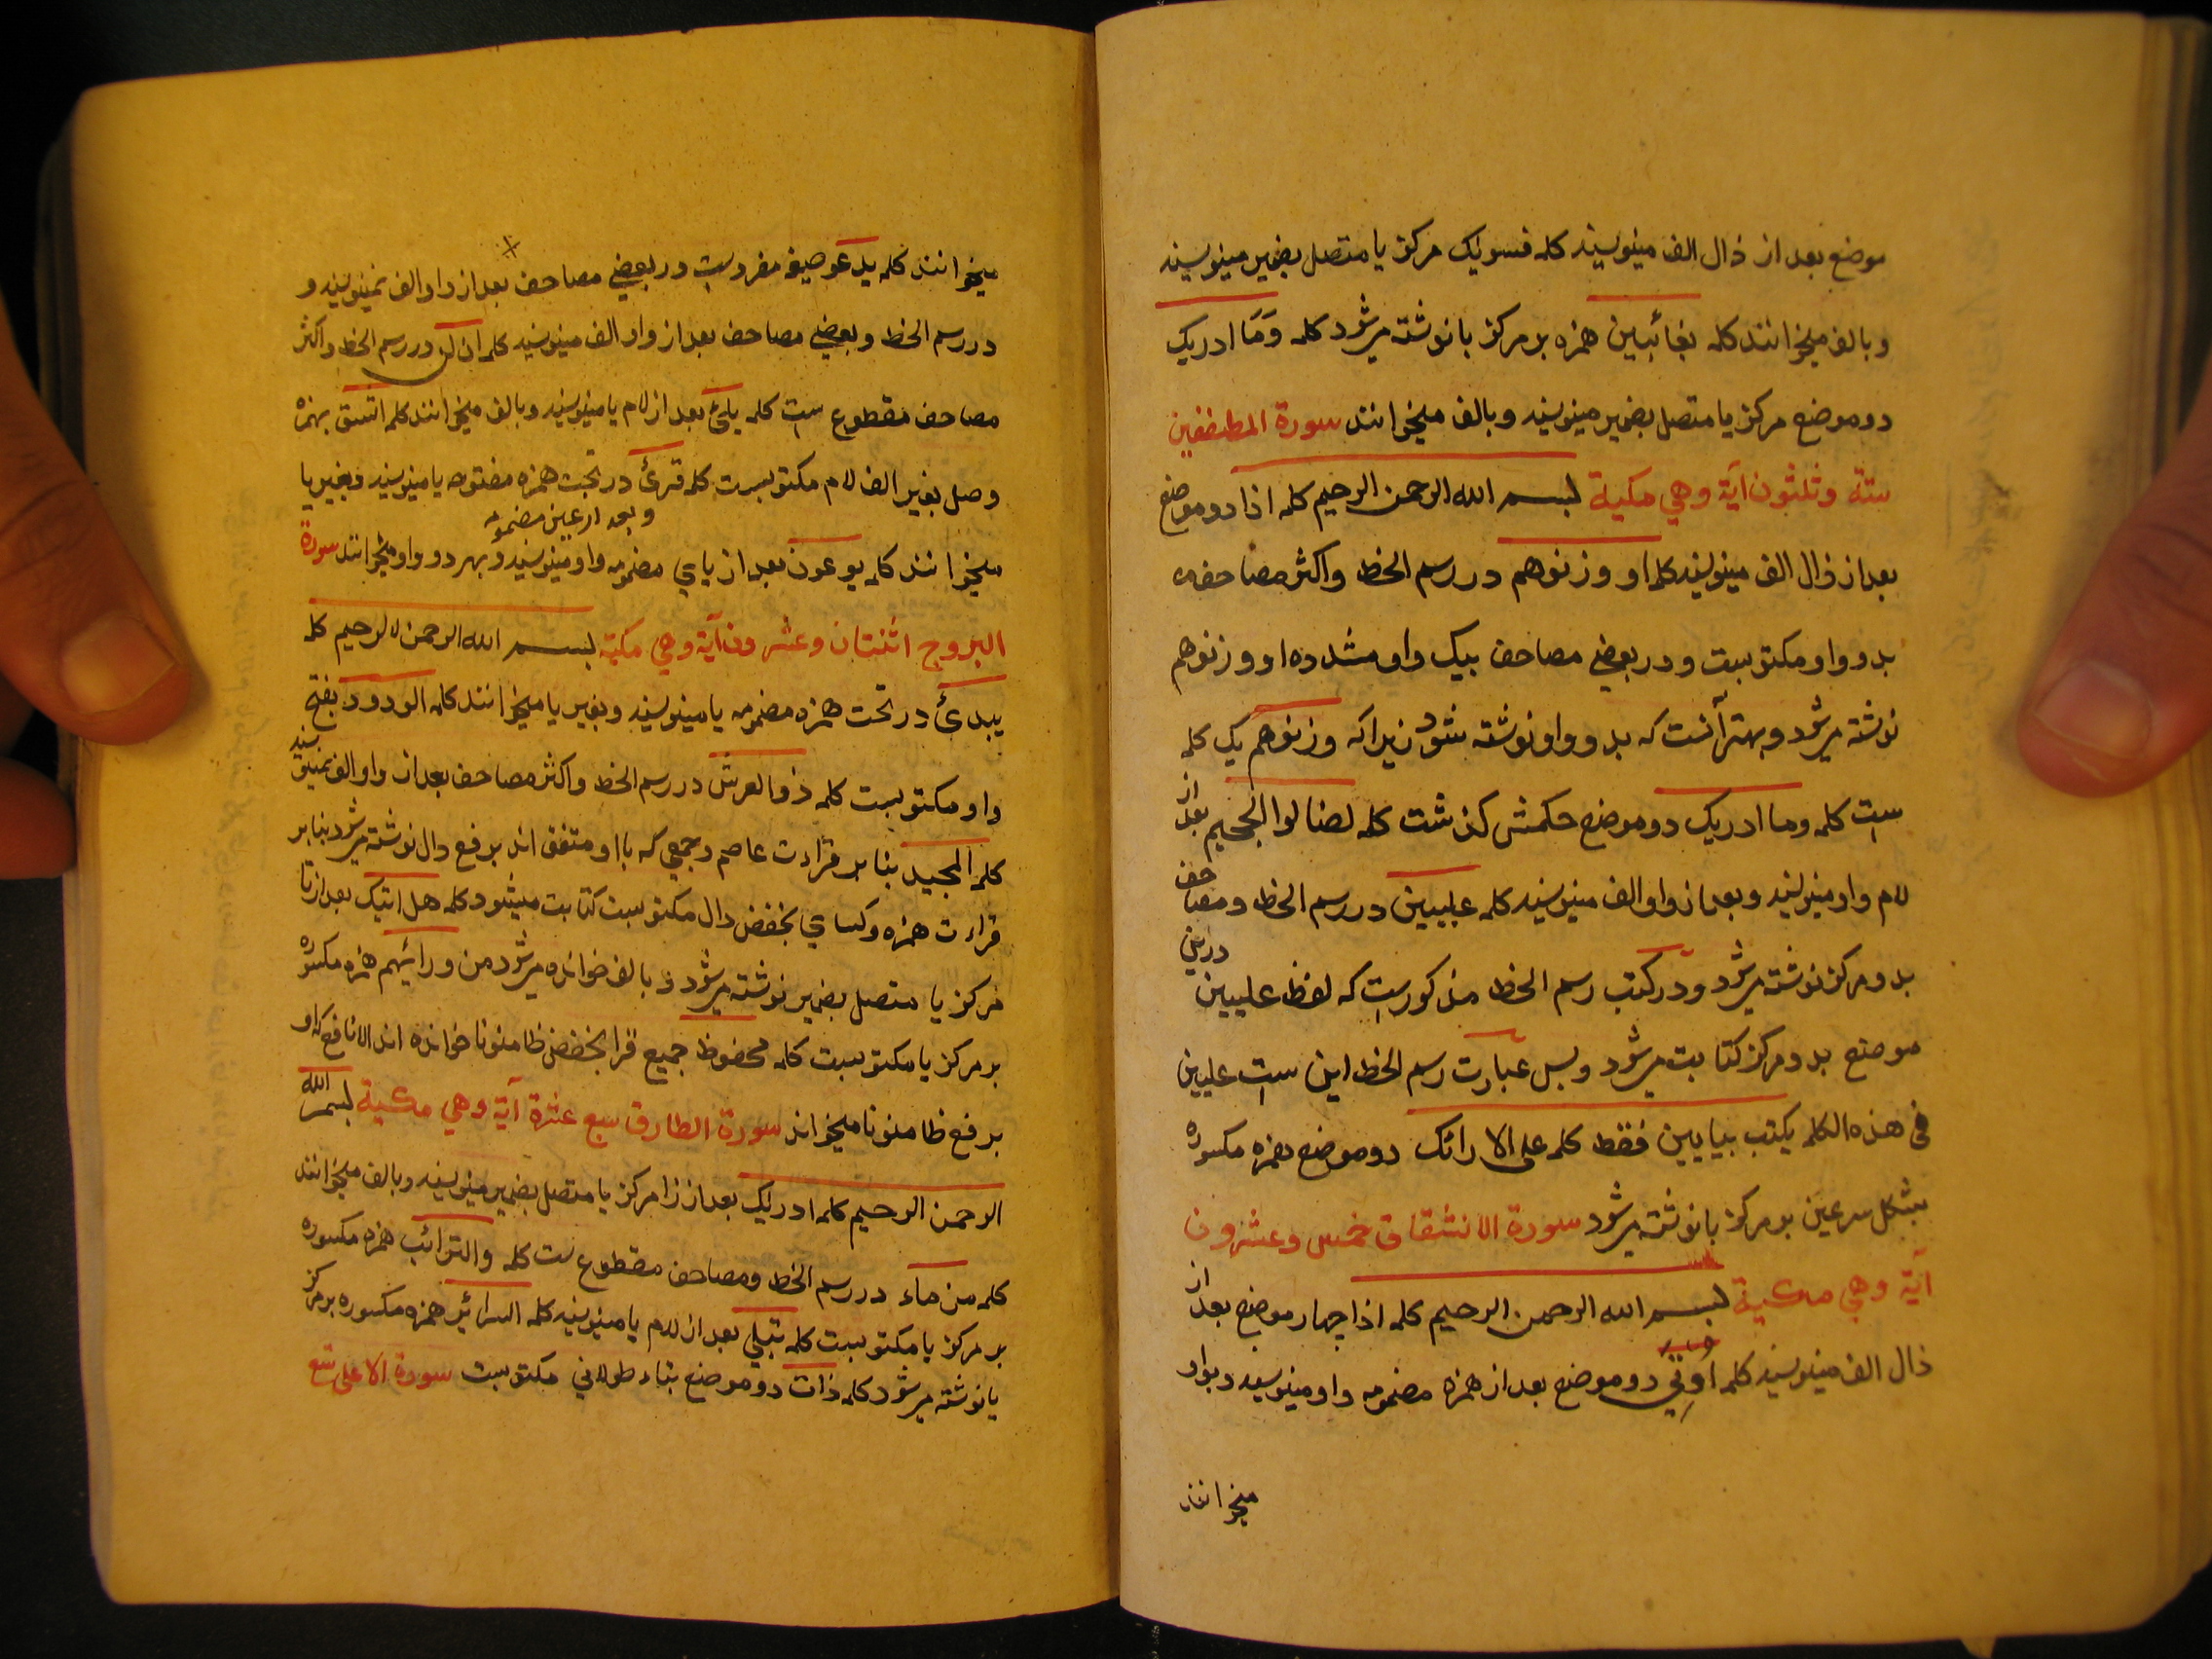 موضع بعد از ذال الف مینویسند کلمه فسویک مرکز یا متصل بضمیر مینویسند
و بالف میخوانند کلمه بغائبین همزه بر مرکز یا نوشته میشود کلمه وَمَا ادریک
دو موضع مرکز یا متصل بضمیر مینویسند و بالف میخوانند سورة المطففین
ستة وثلثون آیة وهي مکیة بسم الله الرحمن الرحیم کلمه اذا دو موضع
بعد از ذال الف مینویسند کلمه او وزنوهم در رسم الخط و اکثر مصاحف
بدو واو مکتوبست و در بعضے مصاحف بیک واو مشدده او وزنوهم
نوشته میشود و بهتر آنست که بدو واو نوشته شود زیرا که وزنوهم یک کلمه
ست کلمه وما ادریک دو موضع حکمش گذشت کلمه لصالوا الجحیم بعد از
لام واو مینویسند و بعد از واو الف مینویسند کلمه علیین در رسم الخط و مصاحف
بدو مرکز نوشته میشود و در کتب رسم الخط مذکورست که لفظ علیین درین
موضع بدو مرکز کتابت میشود و بس عبارت رسم الخط این ست علیین
فی هذه الکلمه یکتب بیایین فقط کلمه علی الارائک دو موضع همزه مکسوره
بشکل سرعین بر مرکز یا نوشته میشود سورة الانشقاق خمس وعشرون
آیة وهي مکیة بسم الله الرحمن الرحیم کلمه اذا چهار موضع بعد از
ذال الف مینویسند کلمه اُوتِيَ دو موضع بعد از همزه مضمومه واو مینویسند و بواو
میخوانند
میخوانند کلمه یدعو صیغه مفردست در بعضے مصاحف بعد از واو الف نمینویسند و
در رسم الخط و بعضے مصاحف بعد از واو الف مینویسند کلمه ان لن در رسم الخط و اکثر
مصاحف مقطوع ست کلمه بلیٰ بعد از لام یا مینویسند و بالف میخوانند کلمه اتسق بهمزه
وصل بغیر الف لام مکتوبست کلمه قرئ در تحت همزه مفتوحه یا مینویسند و بغیر یا
و بعد از عین مضمومه
میخوانند کلمه یوعون بعد از یای مضمومه واو مینویسند و بهر دو واو میخوانند سورة
البروج اثنتان وعشرون آیة وهي مکیة بسم الله الرحمن الرحیم کلمه
یبدئ در تحت همزه مضمومه یا مینویسند و بغیر یا میخوانند کلمه الودود بفتح
واو مکتوبست کلمه ذو العرش در رسم الخط و اکثر مصاحف بعد از واو الف نمینویسند
کلمه المجید بنا بر قراءت عاصم و جمعی که با او متفق اند برفع دال نوشته میشود بنا بر
قراءت همزه و کسای بخفض دال مکتوبست کتابت میشود کلمه هل اتیک بعد از تا
مرکز یا متصل بضمیر نوشته میشود و بالف خوانده میشود من ورائهم همزه مکسوره
بر مرکز یا مکتوبست کلمه محفوظ جمیع قرا بخفض ظا منونا خوانده اند الا نافع که او
برفع ظا منونا میخواند سورة الطارق سبع عشرة آیة وهي مکیة بسم الله
الرحمن الرحیم کلمه ادریک بعد از را مرکز یا متصل بضمیر مینویسند و بالف میخوانند
کلمه من ماء در رسم الخط و مصاحف مقطوع ست کلمه والترائب همزه مکسوره
بر مرکز یا مکتوبست کلمه تبلی بعد از لام یا مینویسند کلمه السرائر همزه مکسوره بر مرکز
یا نوشته میشود کلمه ذات دو موضع بتاء طولانی مکتوبست سورة الاعلی تسع